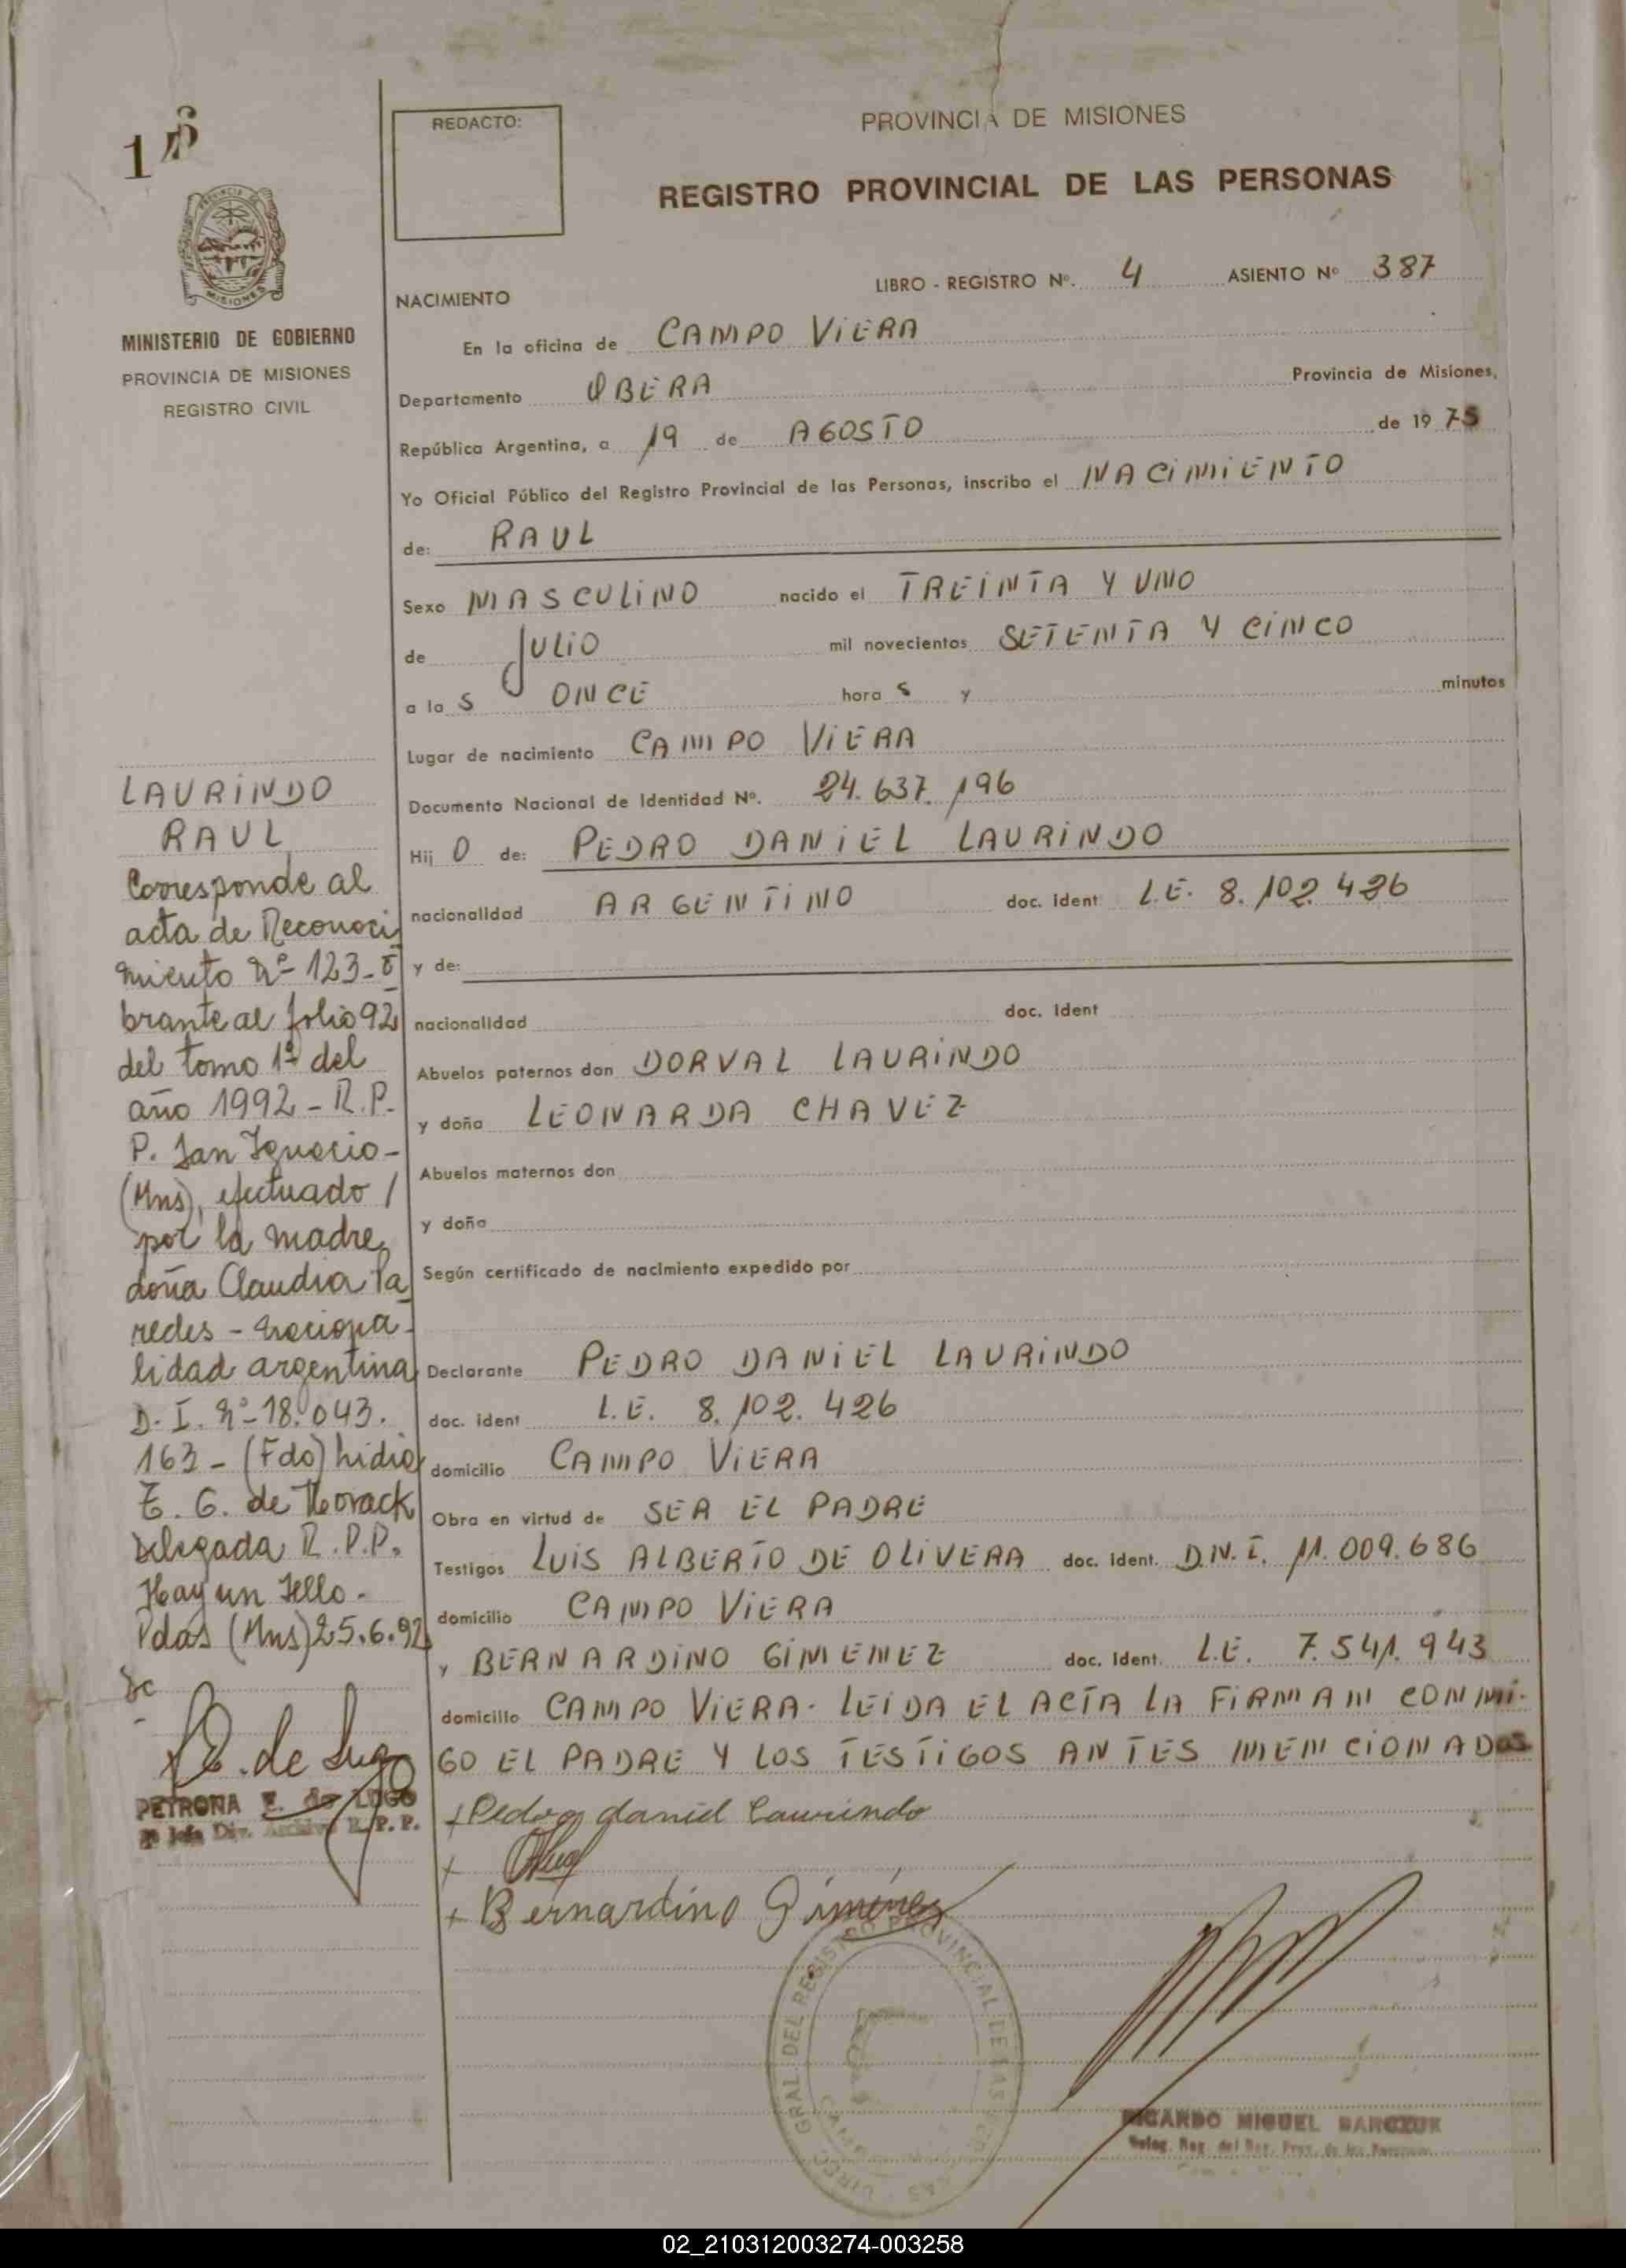 REDACTO:
PROVINCIA DE MISIONES
REGISTRO PROVINCIAL DE LAS PERSONAS
LIBRO - REGISTRO Nº. 4 ASIENTO Nº 387
NACIMIENTO
En la oficina de CAMPO VIERA
Departamento OBERA Provincia de Misiones,
República Argentina, a 19 de AGOSTO de 1975
Yo Oficial Público del Registro Provincial de las Personas, inscribo el NACIMIENTO
de: RAUL
Sexo MASCULINO nacido el TREINTA Y UNO
de JULIO mil novecientos SETENTA Y CINCO
a las ONCE horas y minutos
Lugar de nacimiento CAMPO VIERA
Documento Nacional de Identidad Nº. 24.637.196
Hijo de: PEDRO DANIEL LAURINDO
nacionalidad ARGENTINO doc. ident L.E. 8.102.426
y de:
nacionalidad doc. ident
Abuelos paternos don DORVAL LAURINDO
y doña LEONARDA CHAVEZ
Abuelos maternos don
y doña
Según certificado de nacimiento expedido por
Declarante PEDRO DANIEL LAURINDO
doc. ident L.E. 8.102.426
domicilio CAMPO VIERA
Obra en virtud de SER EL PADRE
Testigos LUIS ALBERTO DE OLIVERA doc. ident. D.N.I. 11.009.686
domicilio CAMPO VIERA
y BERNARDINO GIMENEZ doc. ident. L.E. 7.541.943
domicilio CAMPO VIERA. LEIDA EL ACTA LA FIRMAN CONMI-
GO EL PADRE Y LOS TESTIGOS ANTES MENCIONADOS
+ Pedro daniel Laurindo
+
+ Bernardino Giménez
RICARDO MIGUEL
MINISTERIO DE GOBIERNO
PROVINCIA DE MISIONES
REGISTRO CIVIL
LAURINDO
RAUL
Corresponde al
acta de Reconoci
miento Nº 123-o
brante al folio 92
del tomo 1º del
año 1992 - R.P.
P. San Ignacio -
(Mns), efectuado /
por la madre
doña Claudia Pa
redes - naciona-
lidad argentina
D. I. Nº 18.043.
163 - (Fdo) Lidia
E. G. de
Delegada R.P.P.
Hay un sello -
Pdas (Mns) 25.6.92
P. E. de Lugo
PETRONA E. de LUGO
Jefa Div. Archivo R.P.P.
02_210312003274-003258